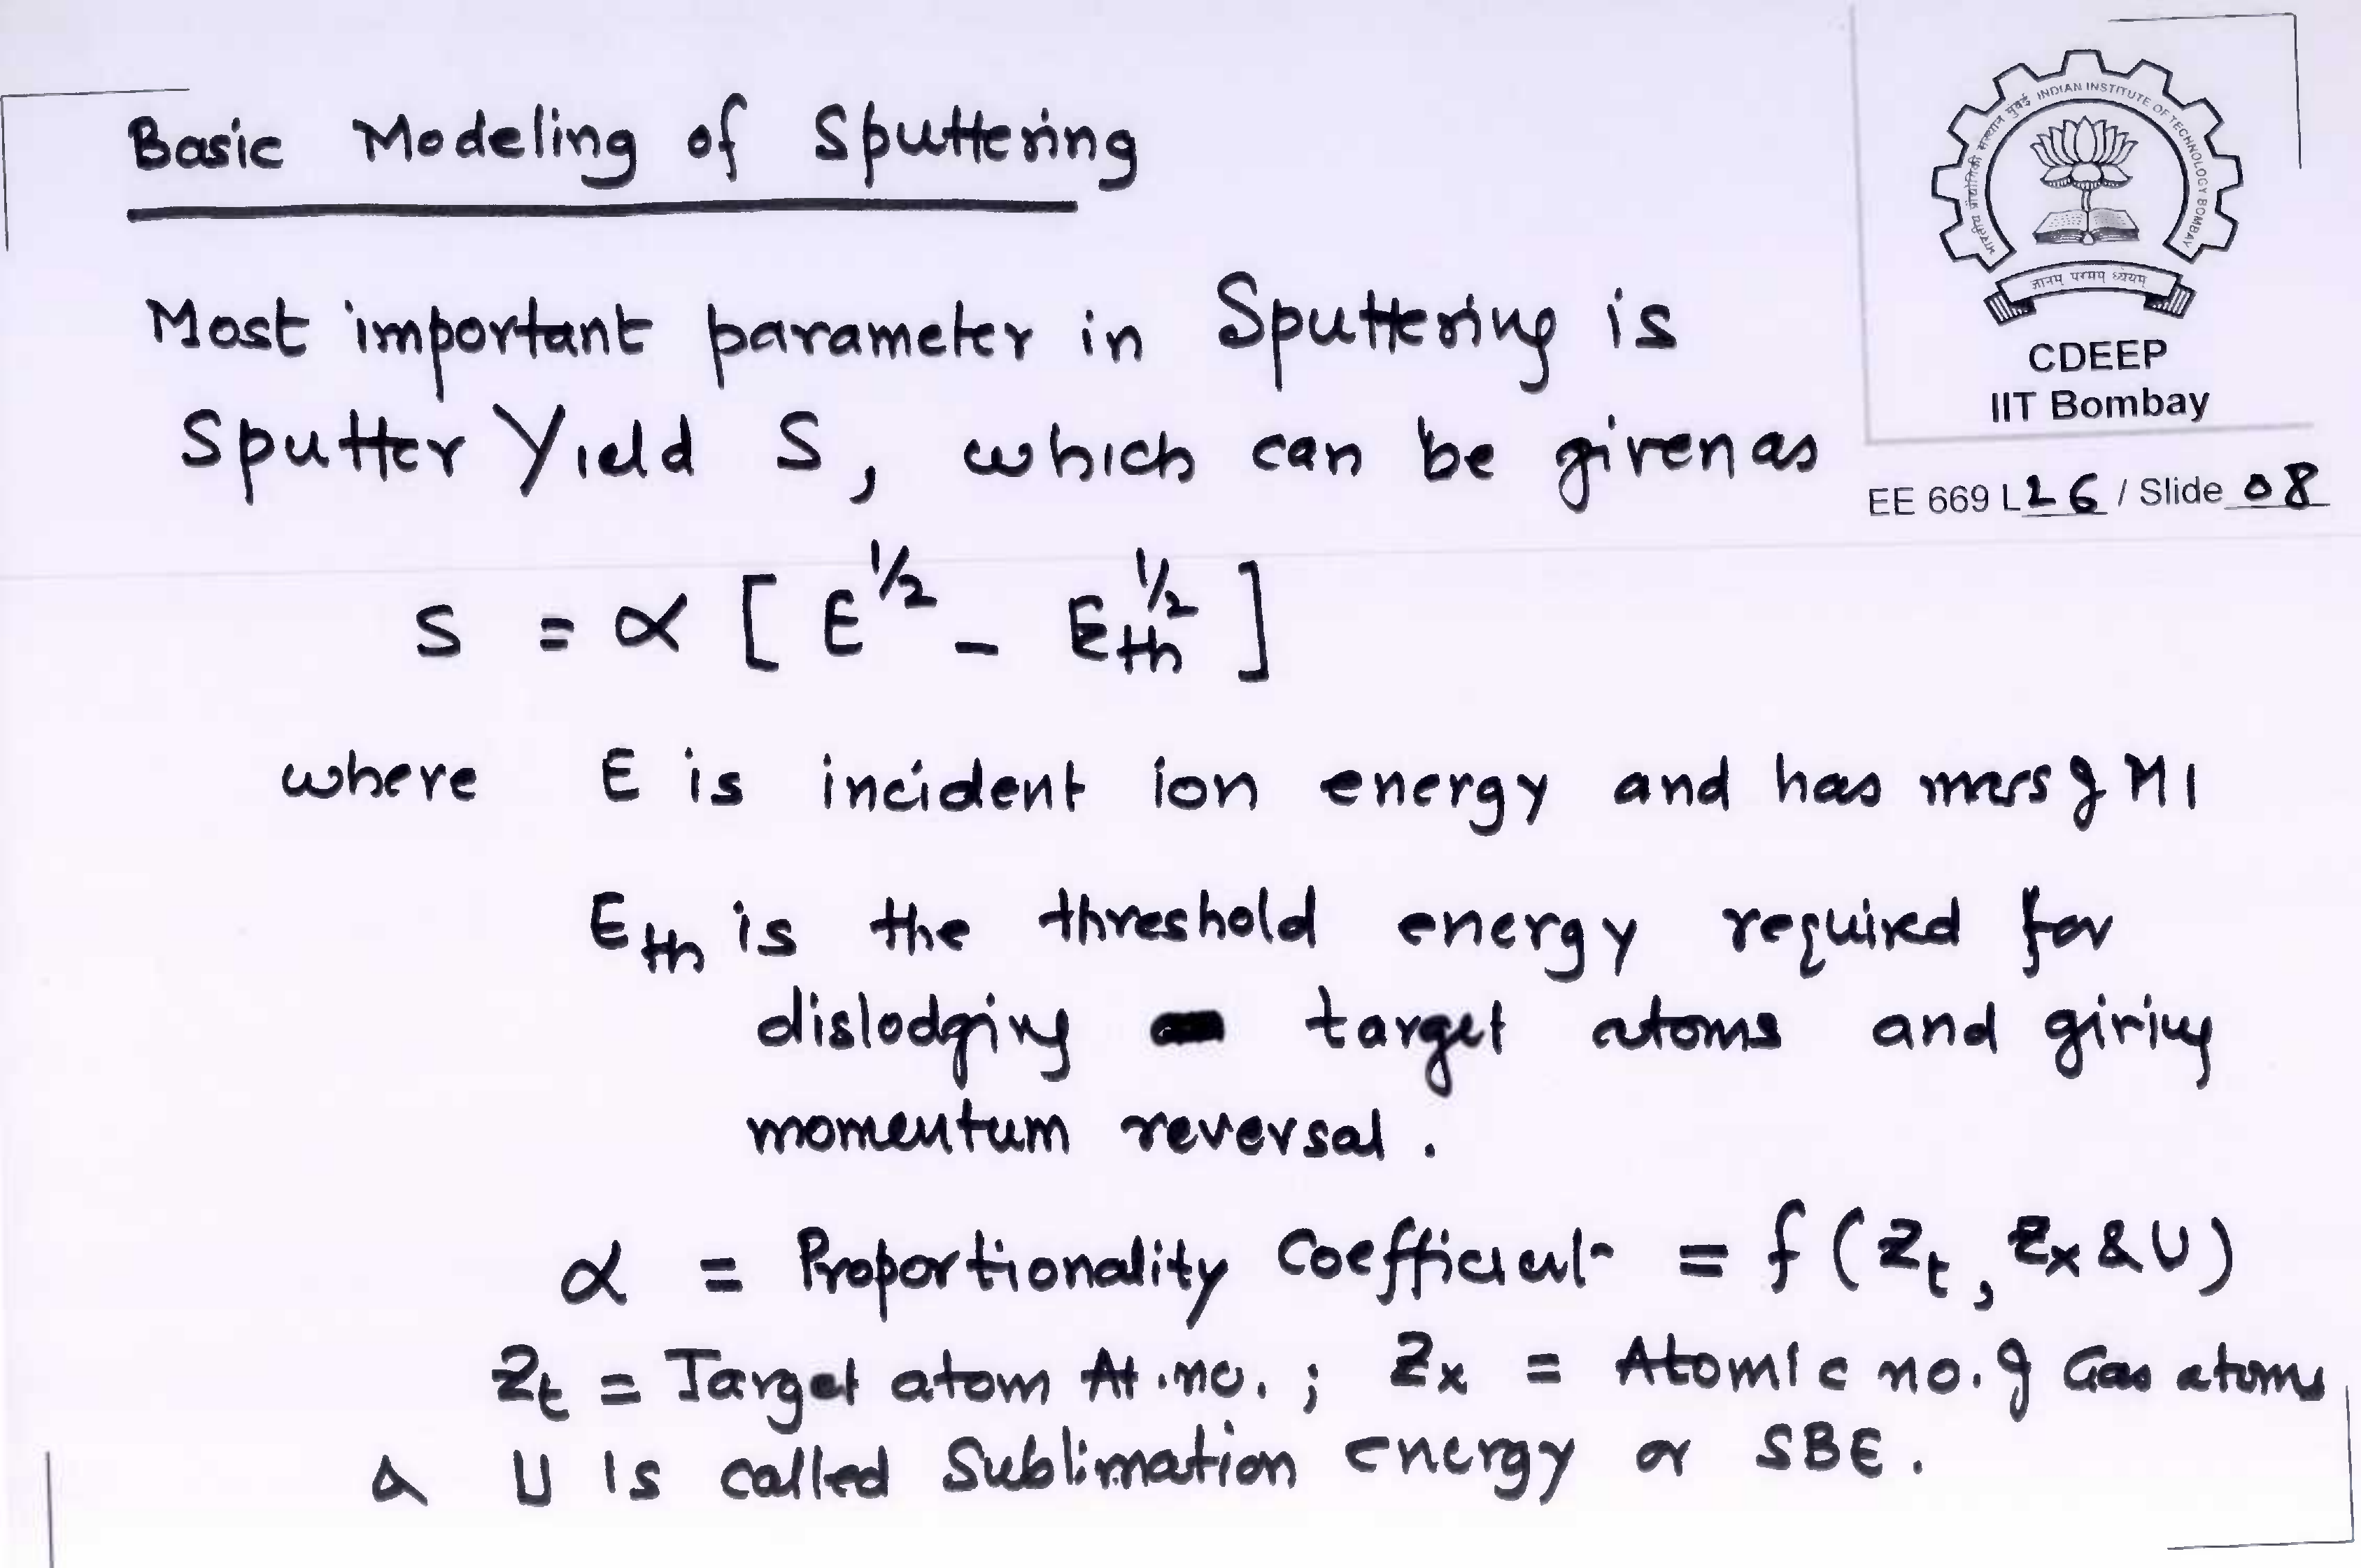 Basic Modeling of Sputtering
भारतीय प्रौद्योगिकी संस्थान मुंबई INDIAN INSTITUTE OF TECHNOLOGY BOMBAY
ज्ञानम् परमम् ध्येयम्
CDEEP
IIT Bombay
EE 669 L 26 / Slide 08
Most important parameter in Sputtering is
Sputter Yield S, which can be given as
S = α [ E^1/2 - E_th^1/2 ]
where E is incident ion energy and has mass of M1
E_th is the threshold energy required for
dislodging target atoms and giving
momentum reversal.
α = Proportionality Coefficient = f (Z_t, Z_x & U)
Z_t = Target atom At. no. ; Z_x = Atomic no. of Gas atoms
& U is called Sublimation energy or SBE.